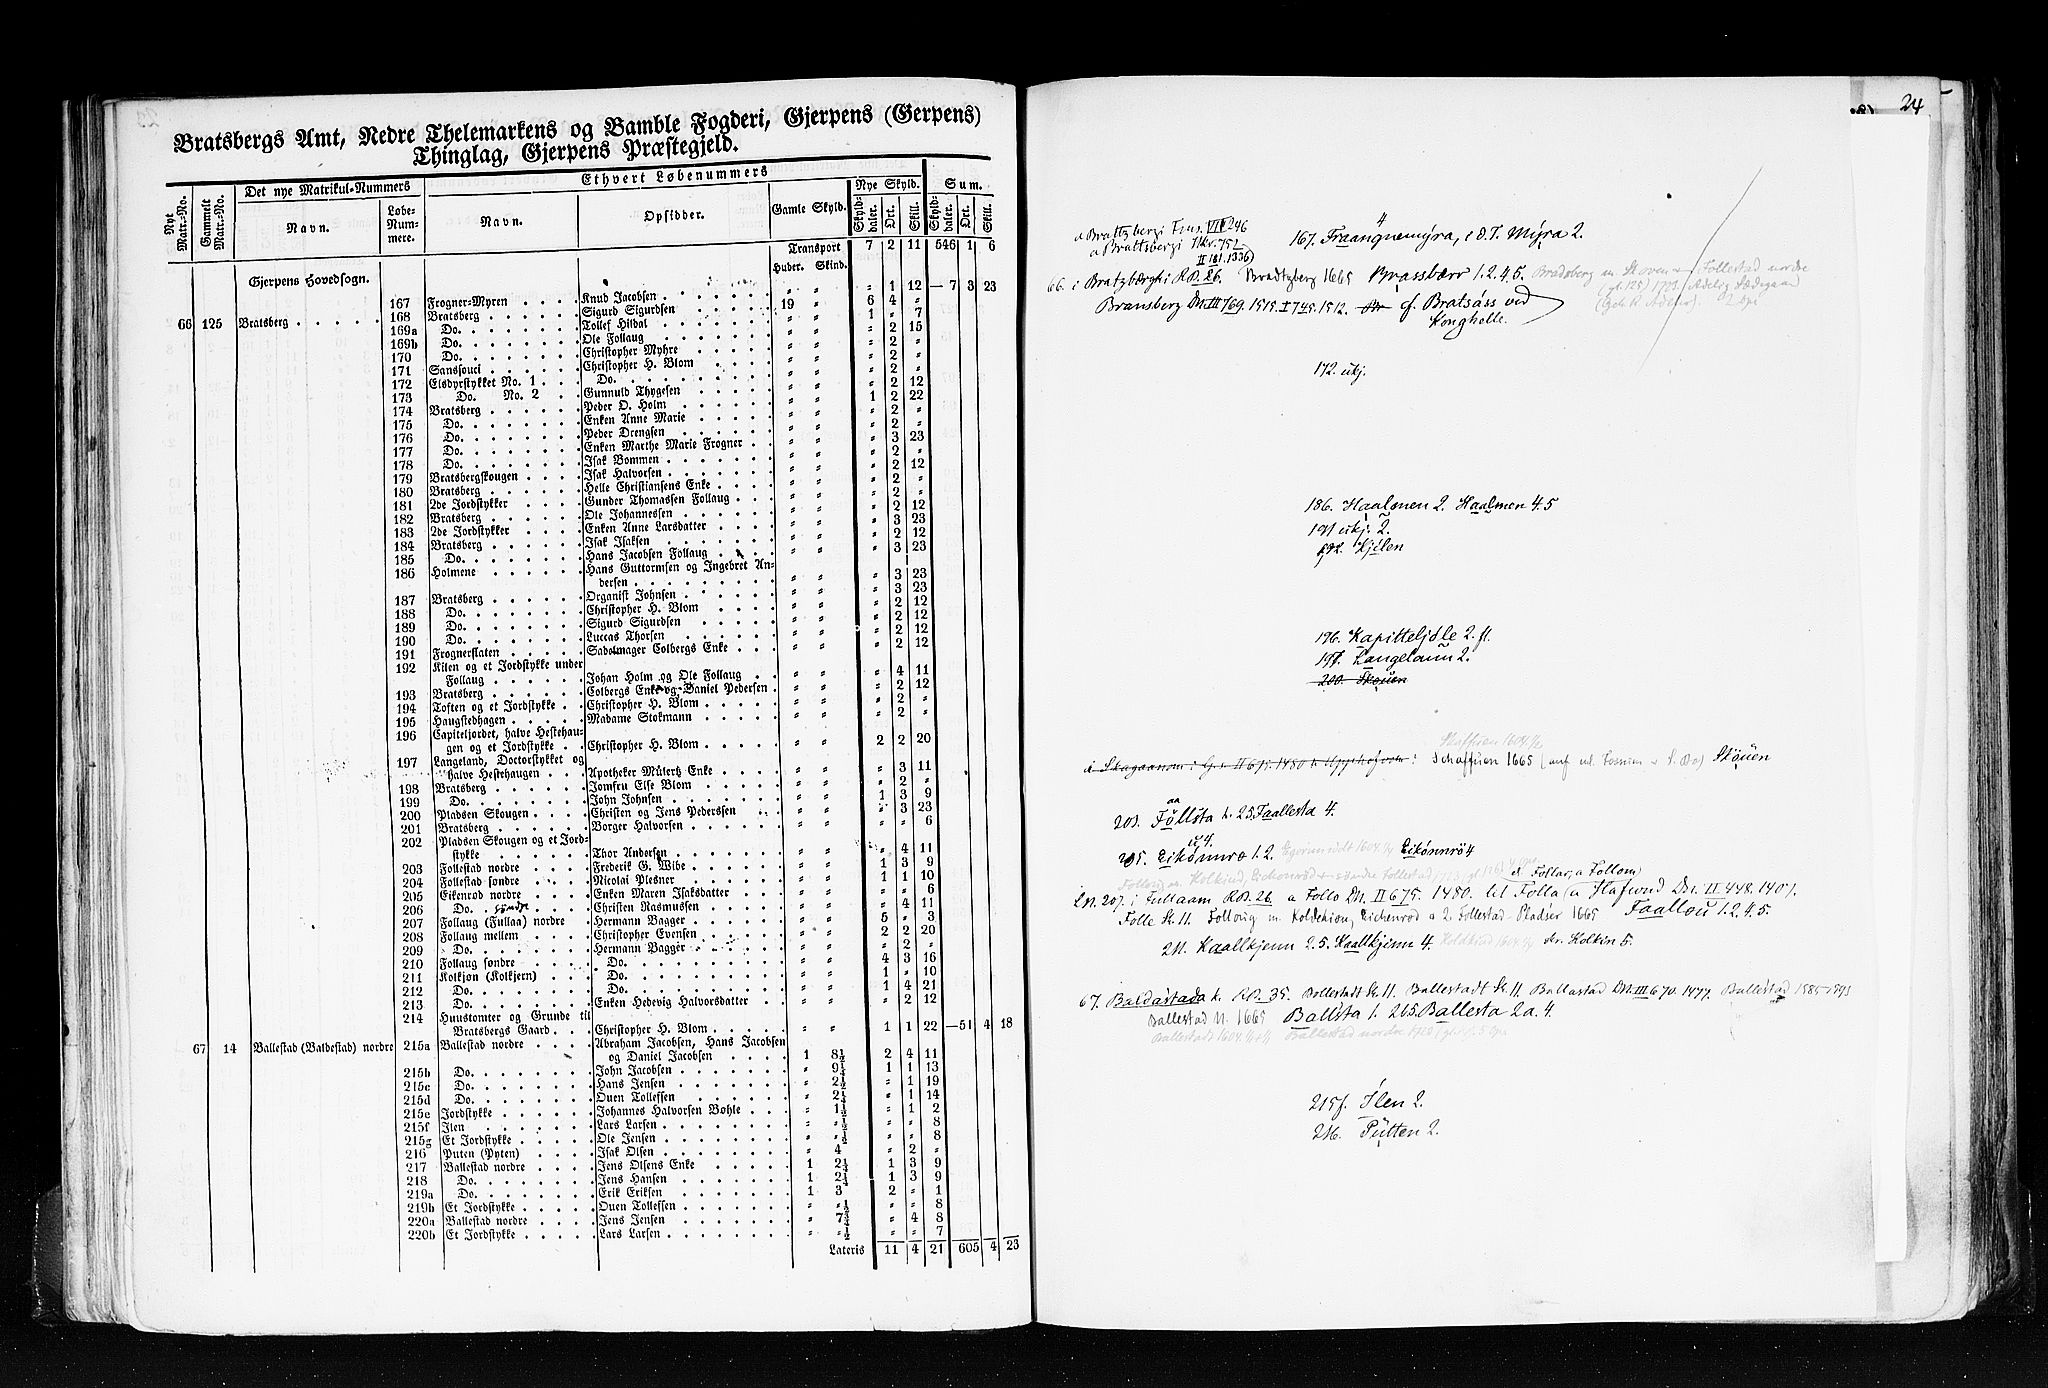 Bratsbergs Amt, Nedre Thelemarkens og Bamble Fogderi, Gjerpens (Gerpens)
Thinglag, Gjerpens Præstegjeld.
Nyt Matr.-No. Gammelt Matr.-No. Det nye Matrikul-Nummers Navn. Løbe-Nummere. Ethvert Løbenummers Navn. Opsidder. Gamle Skyld. Nye Skyld. Skylddaler. Ort. Skill. Sum. Skylddaler. Ort. Skill.
Transport 7 2 11 546 1 6
Huder. Skind.
Gjerpens Hovedsogn.
167 Frogner-Myren Knud Jacobsen " " " 1 12 — 7 3 23
66 125 Bratsberg 168 Bratsberg Sigurd Sigurdsen 19 " 6 4 "
169a Do. Tollef Hildal " " 1 " 7
169b Do. Ole Follaug " " " 2 15
170 Do. Christopher Myhre " " " 2 "
171 Sanssouci Christopher H. Blom " " " 2 "
172 Elsdyrstykket No. 1 Do. " " " 2 "
173 Do. No. 2 Gunnuld Thygesen " " " 2 12
174 Bratsberg Peder O. Holm " " 1 2 22
175 Do. Enken Anne Marie " " " 2 "
176 Do. Peder Drengsen " " " 2 "
177 Do. Enken Marthe Marie Frogner " " " 3 23
178 Do. Isak Bommen " " " 2 "
179 Bratsbergskougen Isak Halvorsen " " " 2 12
180 Bratsberg Helle Christiansens Enke " " " 2 "
181 2de Jordstykker Gunder Thomassen Follaug " " " 2 "
182 Bratsberg Ole Johannessen " " " 2 12
183 2de Jordstykker Enken Anne Larsdatter " " " 3 23
184 Bratsberg Isak Isaksen " " " 2 12
185 Do. Hans Jacobsen Follaug " " " 3 23
186 Holmene Hans Guttormsen og Ingebret An-
dersen " " " 3 23
187 Bratsberg Organist Johnsen " " " 3 23
188 Do. Christopher H. Blom " " " 2 12
189 Do. Sigurd Sigurdsen " " " 2 12
190 Do. Luccas Thorsen " " " 2 12
191 Frognersláten Sadelmager Colbergs Enke " " " 2 12
192 Kilen og et Jordstykke under
Follaug Johan Holm og Ole Follaug " " " 4 11
193 Bratsberg Colbergs Enke og Daniel Pedersen " " " 2 12
194 Toften og et Jordstykke Christopher H. Blom " " " 2 "
195 Haugstedhagen Madame Stokmann " " " 2 "
196 Capiteljordet, halve Hestehau-
gen og et Jordstykke Christopher H. Blom " " 2 2 20
197 Langeland, Doctorstykket og
halve Hestehaugen Apotheker Mülertz Enke " " " 3 11
198 Bratsberg Jomfru Else Blom " " " 2 "
199 Do. John Johnsen " " 1 3 9
200 Pladsen Skougen Christen og Jens Pederssen " " " 3 23
201 Bratsberg Borger Halvorsen " " " " 6
202 Pladsen Skougen og et Jord-
stykke Thor Andersen " " " 4 11
203 Follestad nordre Frederik G. Wibe " " 1 3 9
204 Follestad søndre Nicolai Plesner " " 1 1 10
205 Eikenrød nordre Enken Maren Isaksdatter " " " " 6
206 Do. søndre Christen Rasmussen " " " 4 11
207 Follaug (Fullaa) nordre Hermann Bagger " " 5 " 3
208 Follaug mellem Christopher Evensen " " 2 2 20
209 Do. Hermann Bagger " " " 2 "
210 Follaug søndre Do. " " 4 3 16
211 Kolkjøn (Kolkjern) Do. " " 1 " 10
212 Do. Do. " " 1 4 21
213 Do. Enken Hedevig Halvorsdatter " " " 2 12
214 Huustomter og Grunde til
Bratsbergs Gaard Christopher H. Blom " " 1 1 22 — 51 4 18
67 14 Ballestad (Baldestad) nordre 215a Ballestad nordre Abraham Jacobsen, Hans Jacobsen
og Daniel Jacobsen 1 8½ 2 4 11
215b Do. John Jacobsen " 9¼ 1 1 13
215c Do. Hans Jensen " 2½ " 1 19
215d Do. Ouen Tollefsen " 2¼ " 1 14
215e Jordstykke Johannes Halvorsen Bøhle " 1½ " 1 2
215f Ilen Lars Larsen " ½ " " 8
215g Et Jordstykke Ole Jensen " ½ " " 8
216 Puten (Pyten) Isak Olsen " 4 " 2 "
217 Ballestad nordre Jens Olsens Enke 1 2¼ 1 3 9
218 Do. Jens Hansen 1 2¼ 1 3 9
219a Do. Erik Eriksen 1 3 2 " 1
219b Et Jordstykke Ouen Tollefsen " ½ " " 8
220a Ballestad nordre Jens Jensen " 7½ " 4 8
220b Et Jordstykke Lars Larsen " ½ " " 7
Lateris 11 4 21 605 4 23
24
a Brattzbergi Fms. VIII 246
a Brattsbergi Hkr. 751
II 181. 1336)
167. Fraangnemyra, i D. T. Myra 2.
66. i Bratzbærghi R.B. 26. Bradtzberg 1665 Brassbærr 1. 2. 4. 5. Bradsberg m. Skoven Follestad nordre
Bransberg Dn. III 769. 1515. II 745. 1512. cf. Bratsáss ved
Konghelle.
172. ukj.
186. Haalmen 2. Haalmen 4. 5
191 ukj. 2.
192. Kjilen
196. Kapitteljole 2. fl.
197. Langelann 2.
200. Skouen
Skaffuen 1604. ½
Schaffuen 1665 Skouen
203. Follsta h. 25. Faallesta 4.
205. Eikonnrø 1. 2. Eikonnrø 4
Ln. 207. i Fullaam R.B. 26. a Follo Dn. II 675. 1480. til Folla (a Hafund Dn. II 448. 1401.
Folle St. 11. Folloug m. Koldekion, Eichenrød a 2. Follestad-Pladser 1665 Faallou 1. 2. 4. 5.
211. Kaallkjenn 2. 5. Kaallkjinn 4. Koldkind 1604. ½ skr. Kolkin 5.
67. Baldastada h. R.B. 35. Bollestadt St. 11. Ballestadt St. 11. Ballastad Dn. III 670. 1477. Ballestad 1585. 1593
Ballestad N. 1665 Ballsta 1. 265. Ballesta 2a. 4.
215f. Ilen 2.
216. Putten 2.